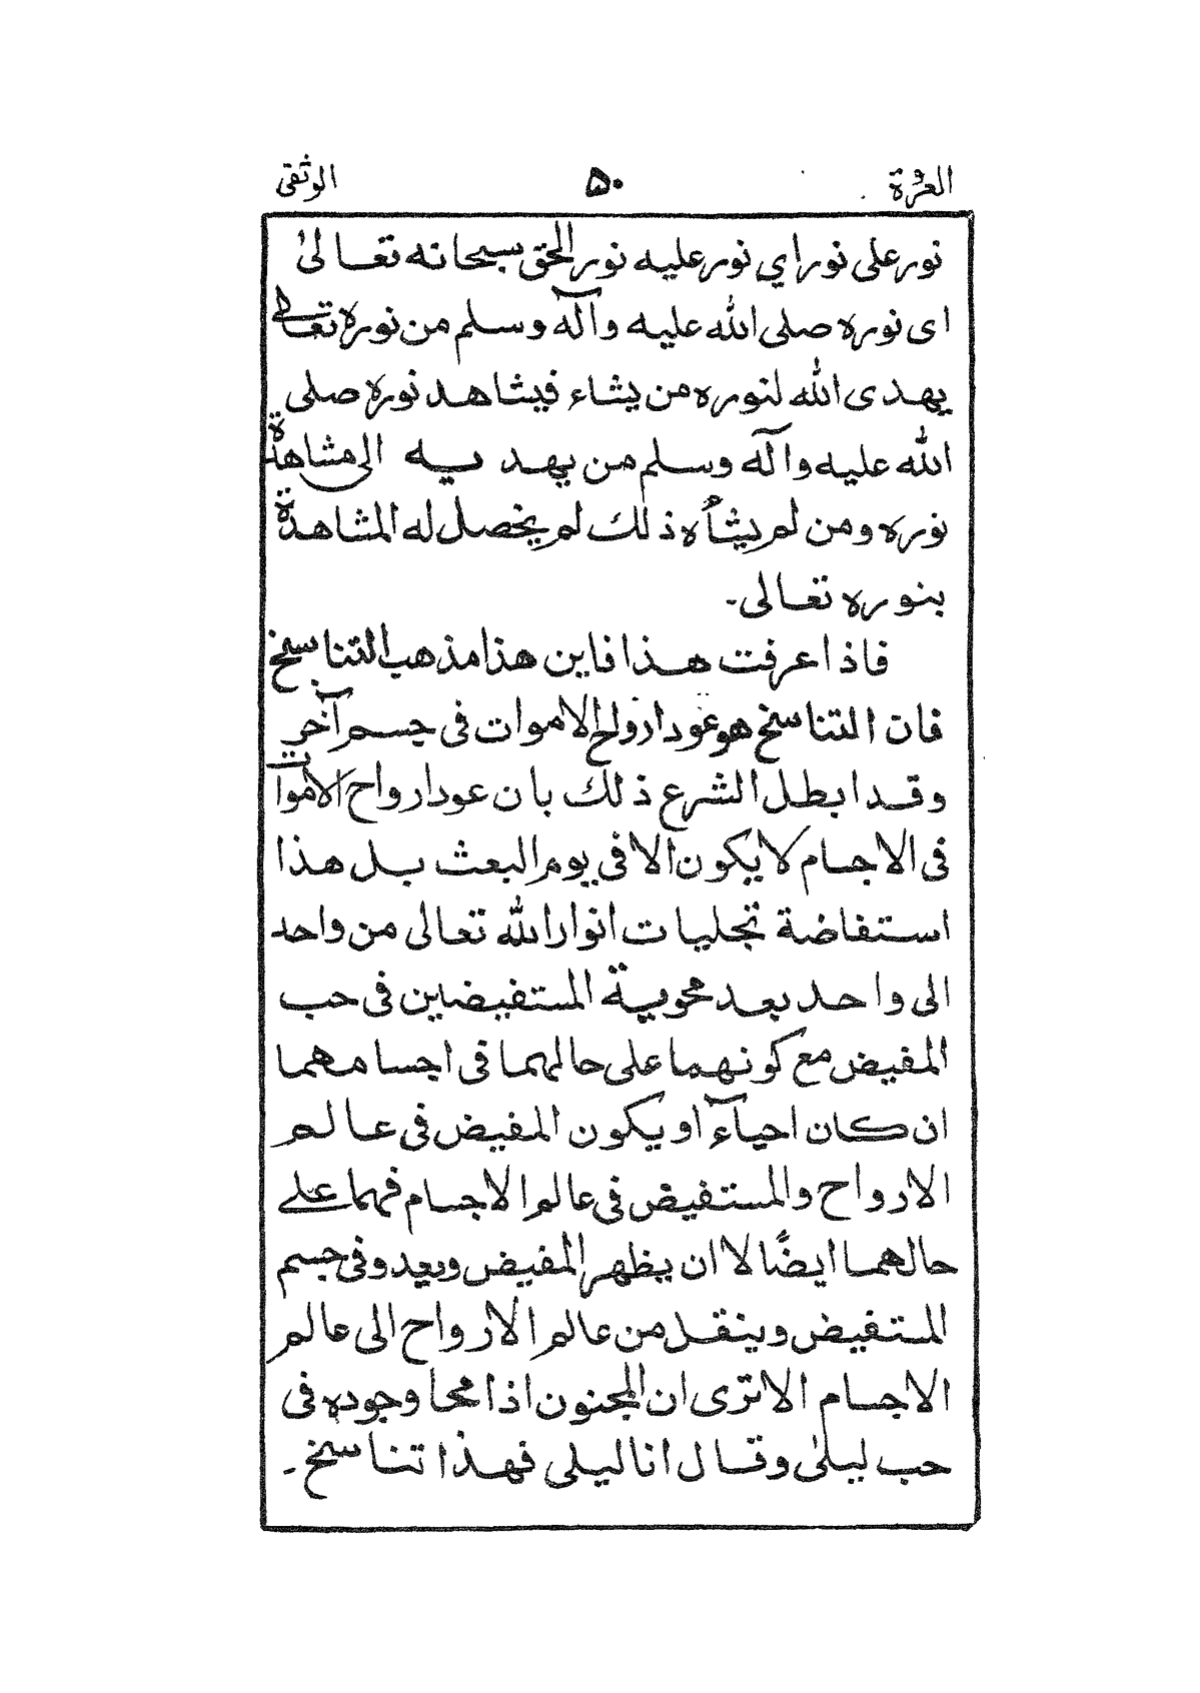 العروة ۵۰ الوثقى
نور على نور اي نور عليه نور الحق سبحانه تعالىٰ
اى نوره صلى الله عليه وآله وسلم من نوره تعالى
يهدى الله لنوره من يشاء فيشاهد نوره صلى
الله عليه وآله وسلم من يهديه الى مشاهدة
نوره ومن لم يشأه ذلك لم يحصل له المشاهدة
بنوره تعالى-
فاذا عرفت هذا فاين هذا مذهب التناسخ
فان التناسخ هو عود ارواح الاموات فى جسم آخر
وقد ابطل الشرع ذلك بان عود ارواح الاموات
فى الاجسام لا يكون الا فى يوم البعث بل هذا
استفاضة تجليات انوار الله تعالى من واحد
الى واحد بعد محوية المستفيضين فى حب
المفيض مع كونهما على حالهما فى اجسامهما
ان كان احيآء او يكون المفيض فى عالم
الارواح والمستفيض فى عالم الاجسام فهما على
حالهما ايضًا لا ان يظهر المفيض ويعيد وفى جسم
المستفيض وينقل من عالم الارواح الى عالم
الاجسام الا ترى ان المجنون اذا محا وجوده فى
حب ليلىٰ وقال انا ليلى فهذا تناسخ-